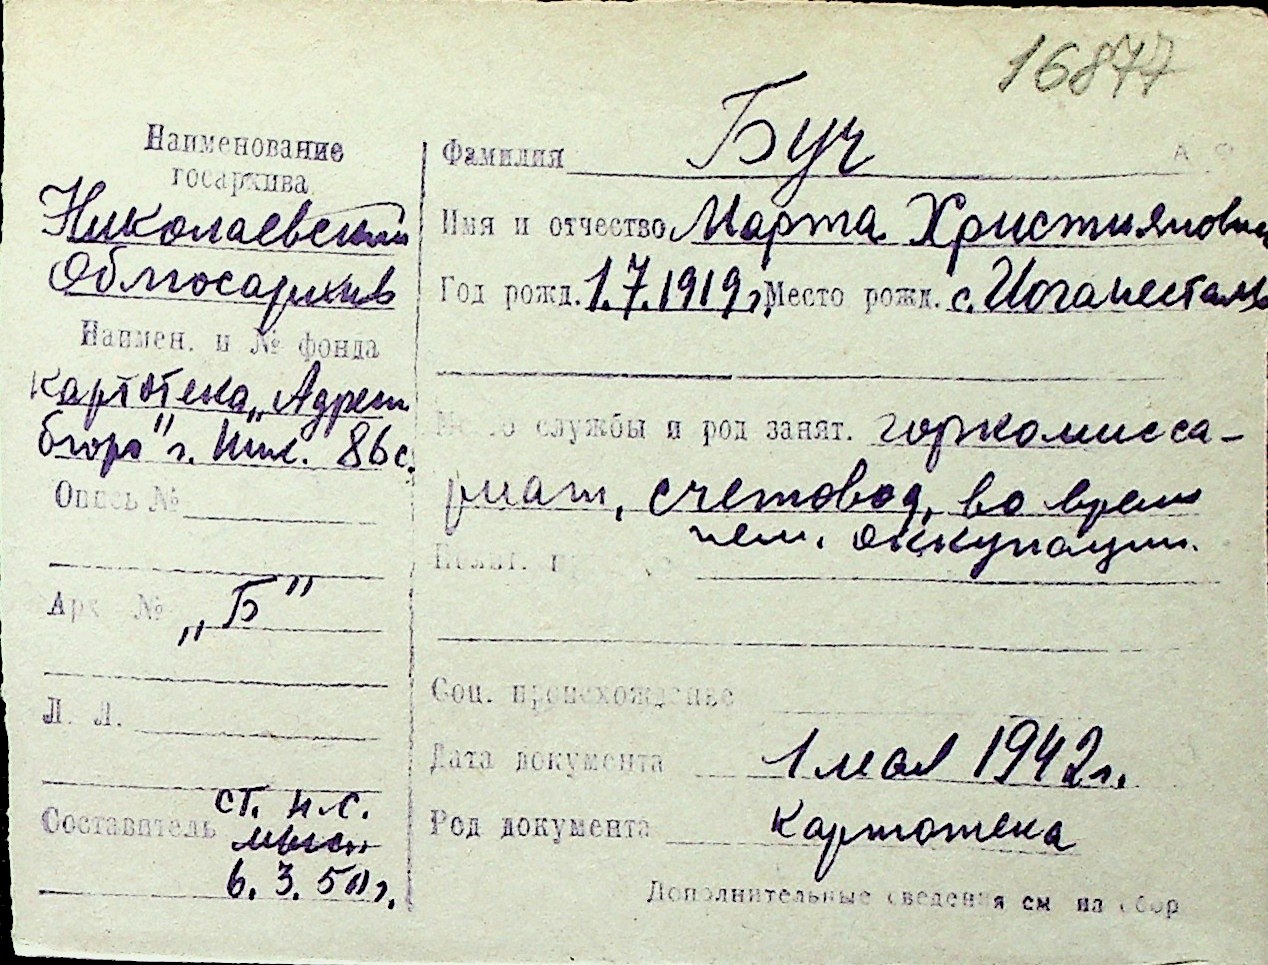 16877
Наименование
госархива
Николаевский
Облгосархив
Наимен. и № фонда
картотека „Адресн
бюро" г. Ник. 86с.
Опись №
Арх №
„Б"
Л. Л.
Составитель
ст. н.с.
6. 3. 50 г.
Фамилия Буч
Имя и отчество Марта Християновн
Год рожд. 1.7.1919 г. Место рожд. с. Иоганесталь
службы и род занят. горкомисса-
риат, счетовод, во время
нем. оккупации.
Соц. происхожденье
Дата документа 1 мая 1942 г.
Род документа картотека
Дополнительные сведения см на обор